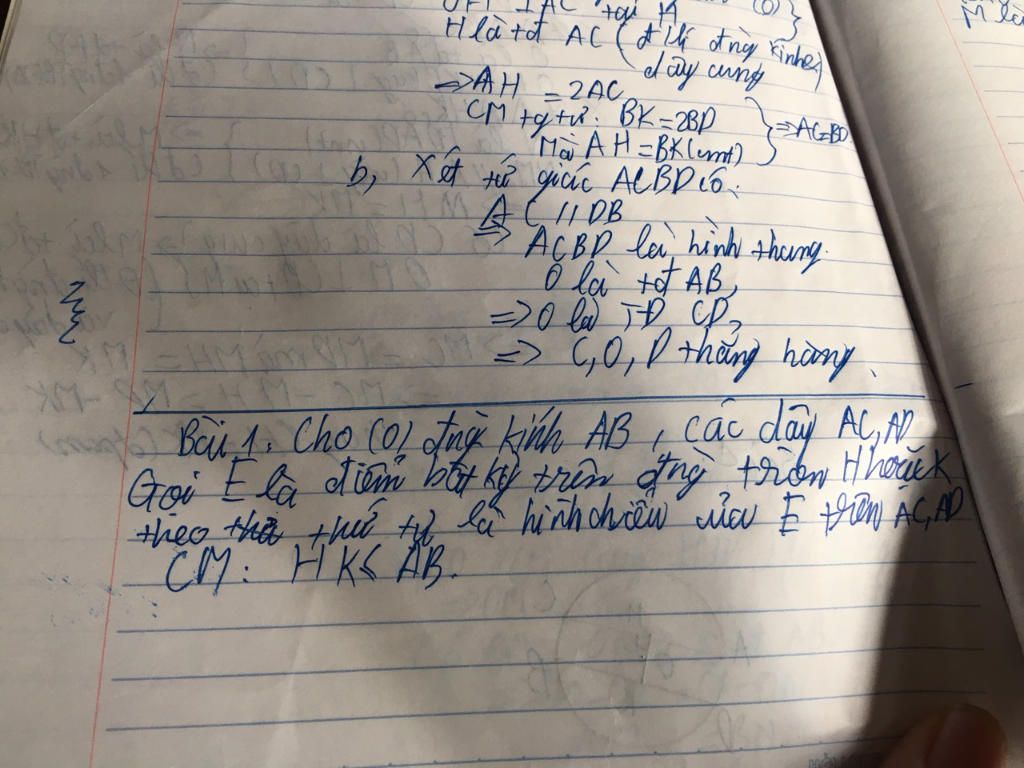 ⊥AC tại M (O)
H là tđ AC (đ lí đng kính
dây cung
⇒ AH = 2AC
CM t y tử: BK = 2BD
⇒ AC=BD
Mà AH = BK (cmt)
b, Xét tứ giác ACBD có:
AC // DB
⇒ ACBD là hình thang.
O là tđ AB,
⇒ O là TĐ CD,
⇒ C, O, D thẳng hàng.
Bài 1: Cho (O) đng kính AB, các dây AC, AD
Gọi E là điểm bất kỳ trên đng tròn H K
theo thứ tự là hình chiếu của E trên AC, AD
CM: HK ≤ AB.